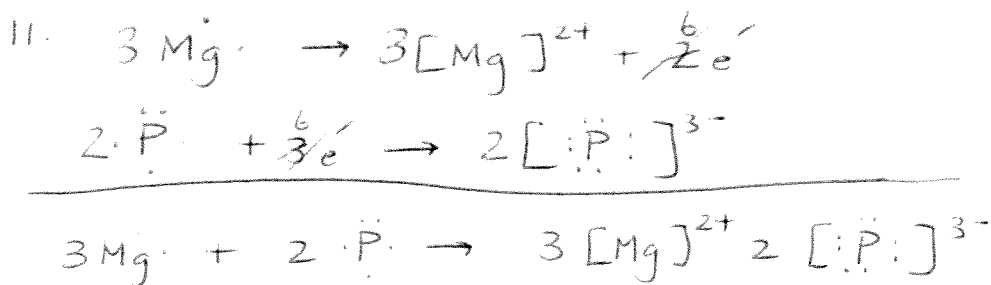 11. 3 Mg· → 3[Mg]²⁺ + 6 2 e⁻
2 ·P̈· + 6 3 e⁻ → 2[:P̈:]³⁻
3 Mg· + 2 ·P̈· → 3 [Mg]²⁺ 2 [:P̈:]³⁻